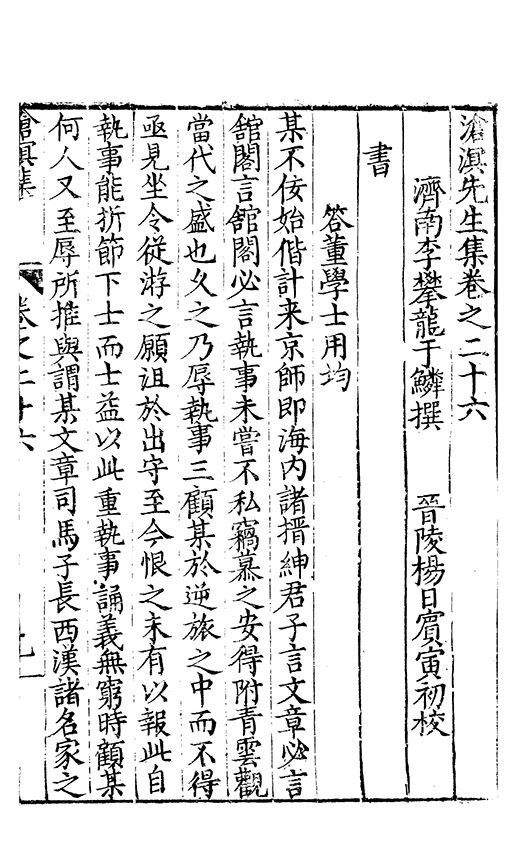 滄溟先生集卷之二十六
濟南李攀龍于鱗撰 晉陵楊日賓寅初校
書
答董學士用均
某不佞始偕計来京師即海内諸搢紳君子言文章必言
舘閣言舘閣必言執事未嘗不私竊慕之安得附青雲觀
當代之盛也乆之乃辱執事三顧某於逆旅之中而不得
亟見坐令從游之願沮於出守至今恨之未有以報此自
執事能折節下士而士益以此重執事誦義無窮時顧某
何人又至辱所推與謂某文章司馬子長西漢諸名家之